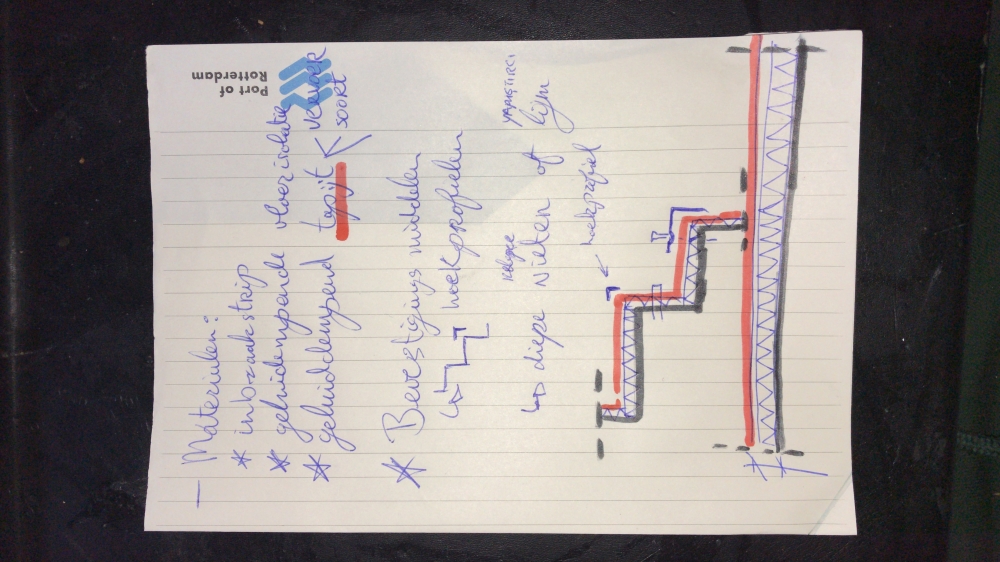 Port of
Rotterdam
— Materialen:
* inbraakstrip
* geluidempende vloerisolatie
* geluiddempend tapijt
soort
* Bevestigings middelen
hoekprofielen
diepe Nieten of lijm
YAPIŞTIRICI
hoekprofiel